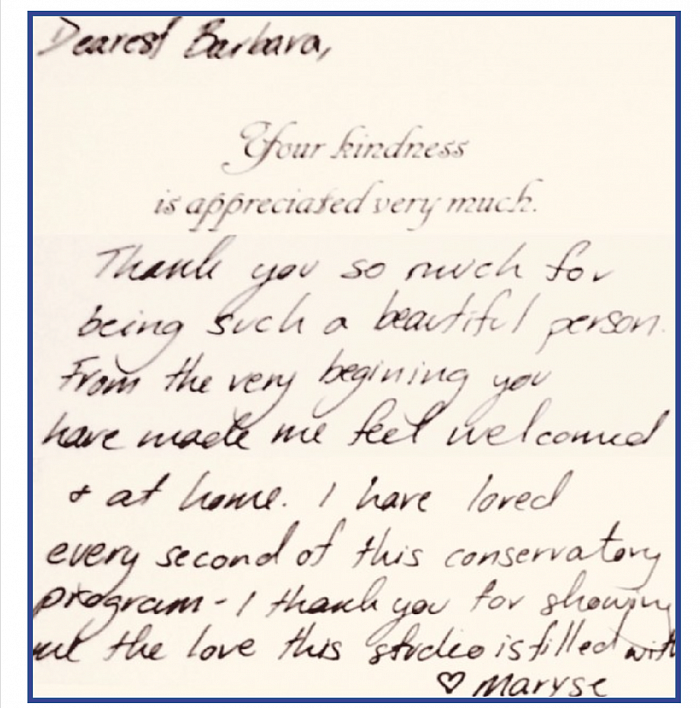 Dearest Barbara,
Your kindness
is appreciated very much.
Thank you so much for
being such a beautiful person.
From the very begining you
have made me feel welcomed
+ at home. I have loved
every second of this conservatory
program - I thank you for showing
me the love this studio is filled with
♡ Maryse